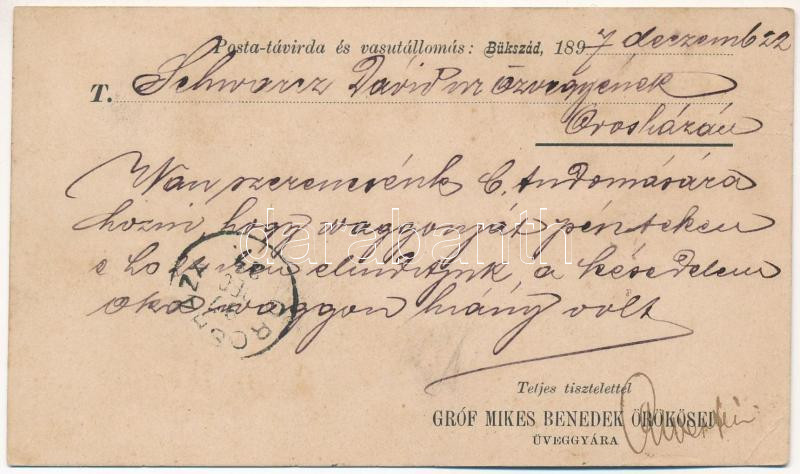 Posta-távirda és vasutállomás: Bükszád, 1897 deczemb 22
T. Schwarcz Dávid ur özvegyének
Orosházán
Van szerencsénk b. tudomására
hozni, hogy waggonját pénteken
e hó elinditjuk, a késedelem
oka waggon hiány volt
OROSHÁZA
darabanth
Teljes tisztelettel
GRÓF MIKES BENEDEK ÖRÖKÖSEI
ÜVEGGYÁRA